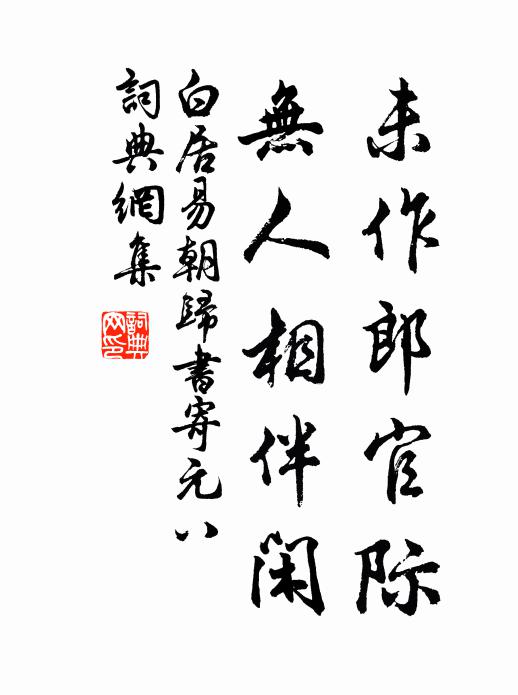 未作郎官际
無人相伴閑
白居易朝歸書寄元八
詞典網集
詞典
网印